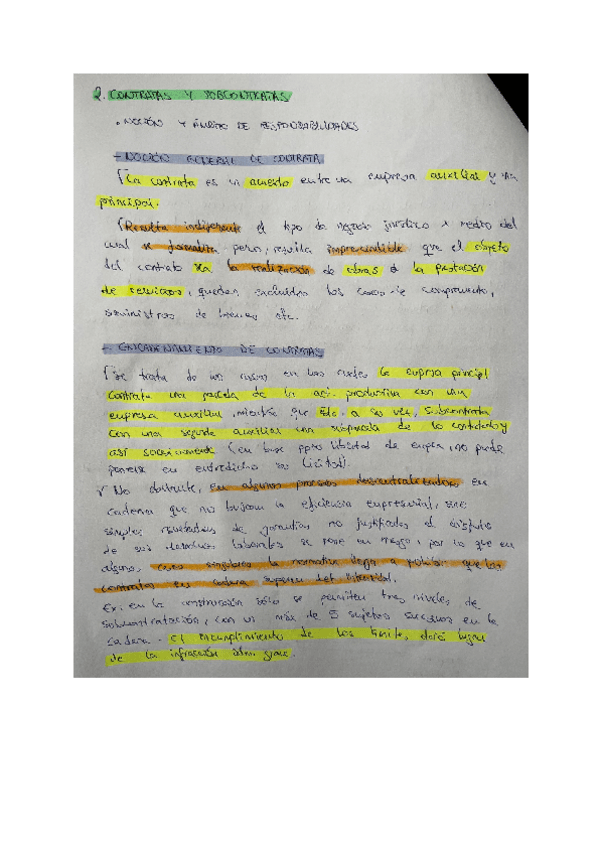 2. CONTRATAS Y SUBCONTRATAS
• NOCIÓN Y ÁMBITO DE RESPONSABILIDADES
- NOCIÓN GENERAL DE CONTRATA
La contrata es un acuerdo entre una empresa auxiliar y una
principal.
Resulta indiferente el tipo de negocio jurídico x medio del
cual se formaliza pero, resulta imprescindible que el objeto
del contrato sea la realización de obras o la prestación
de servicios, quedan excluidos los casos de compraventa,
suministros de bienes etc.
- ENCADENAMIENTO DE CONTRATAS
Se trata de los casos en los cuales la empresa principal
contrata una parcela de la act. productiva con una
empresa auxiliar, mientras que ésta, a su vez, subcontrata
con una segunda auxiliar una subparcela de lo contratado y
así sucesivamente (en base ppio libertad de empresa, no puede
ponerse en entredicho su licitud).
No obstante, en algunos procesos descentralizadores en
cadena que no buscan la eficiencia empresarial, sino
simples resultados de garantías no justificados el
de sus derechos laborales se pone en riesgo, por lo que en
algunos casos singulares la normativa llega a que las
contratas en cadena
Ex. en la construcción sólo se permiten tres niveles de
subcontratación, con un máx de 5 sujetos sucesivos en la
cadena. El incumplimiento de los límites dará lugar
de la infracción adm. grave.